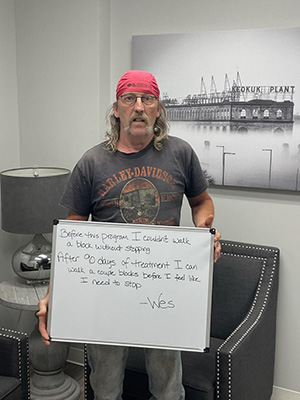 KEOKUK PLANT
HARLEY-DAVIDSON
Before this program I couldn't walk
a block without stopping.
After 90 days of treatment I can
walk a couple blocks before I feel like
I need to stop
-Wes